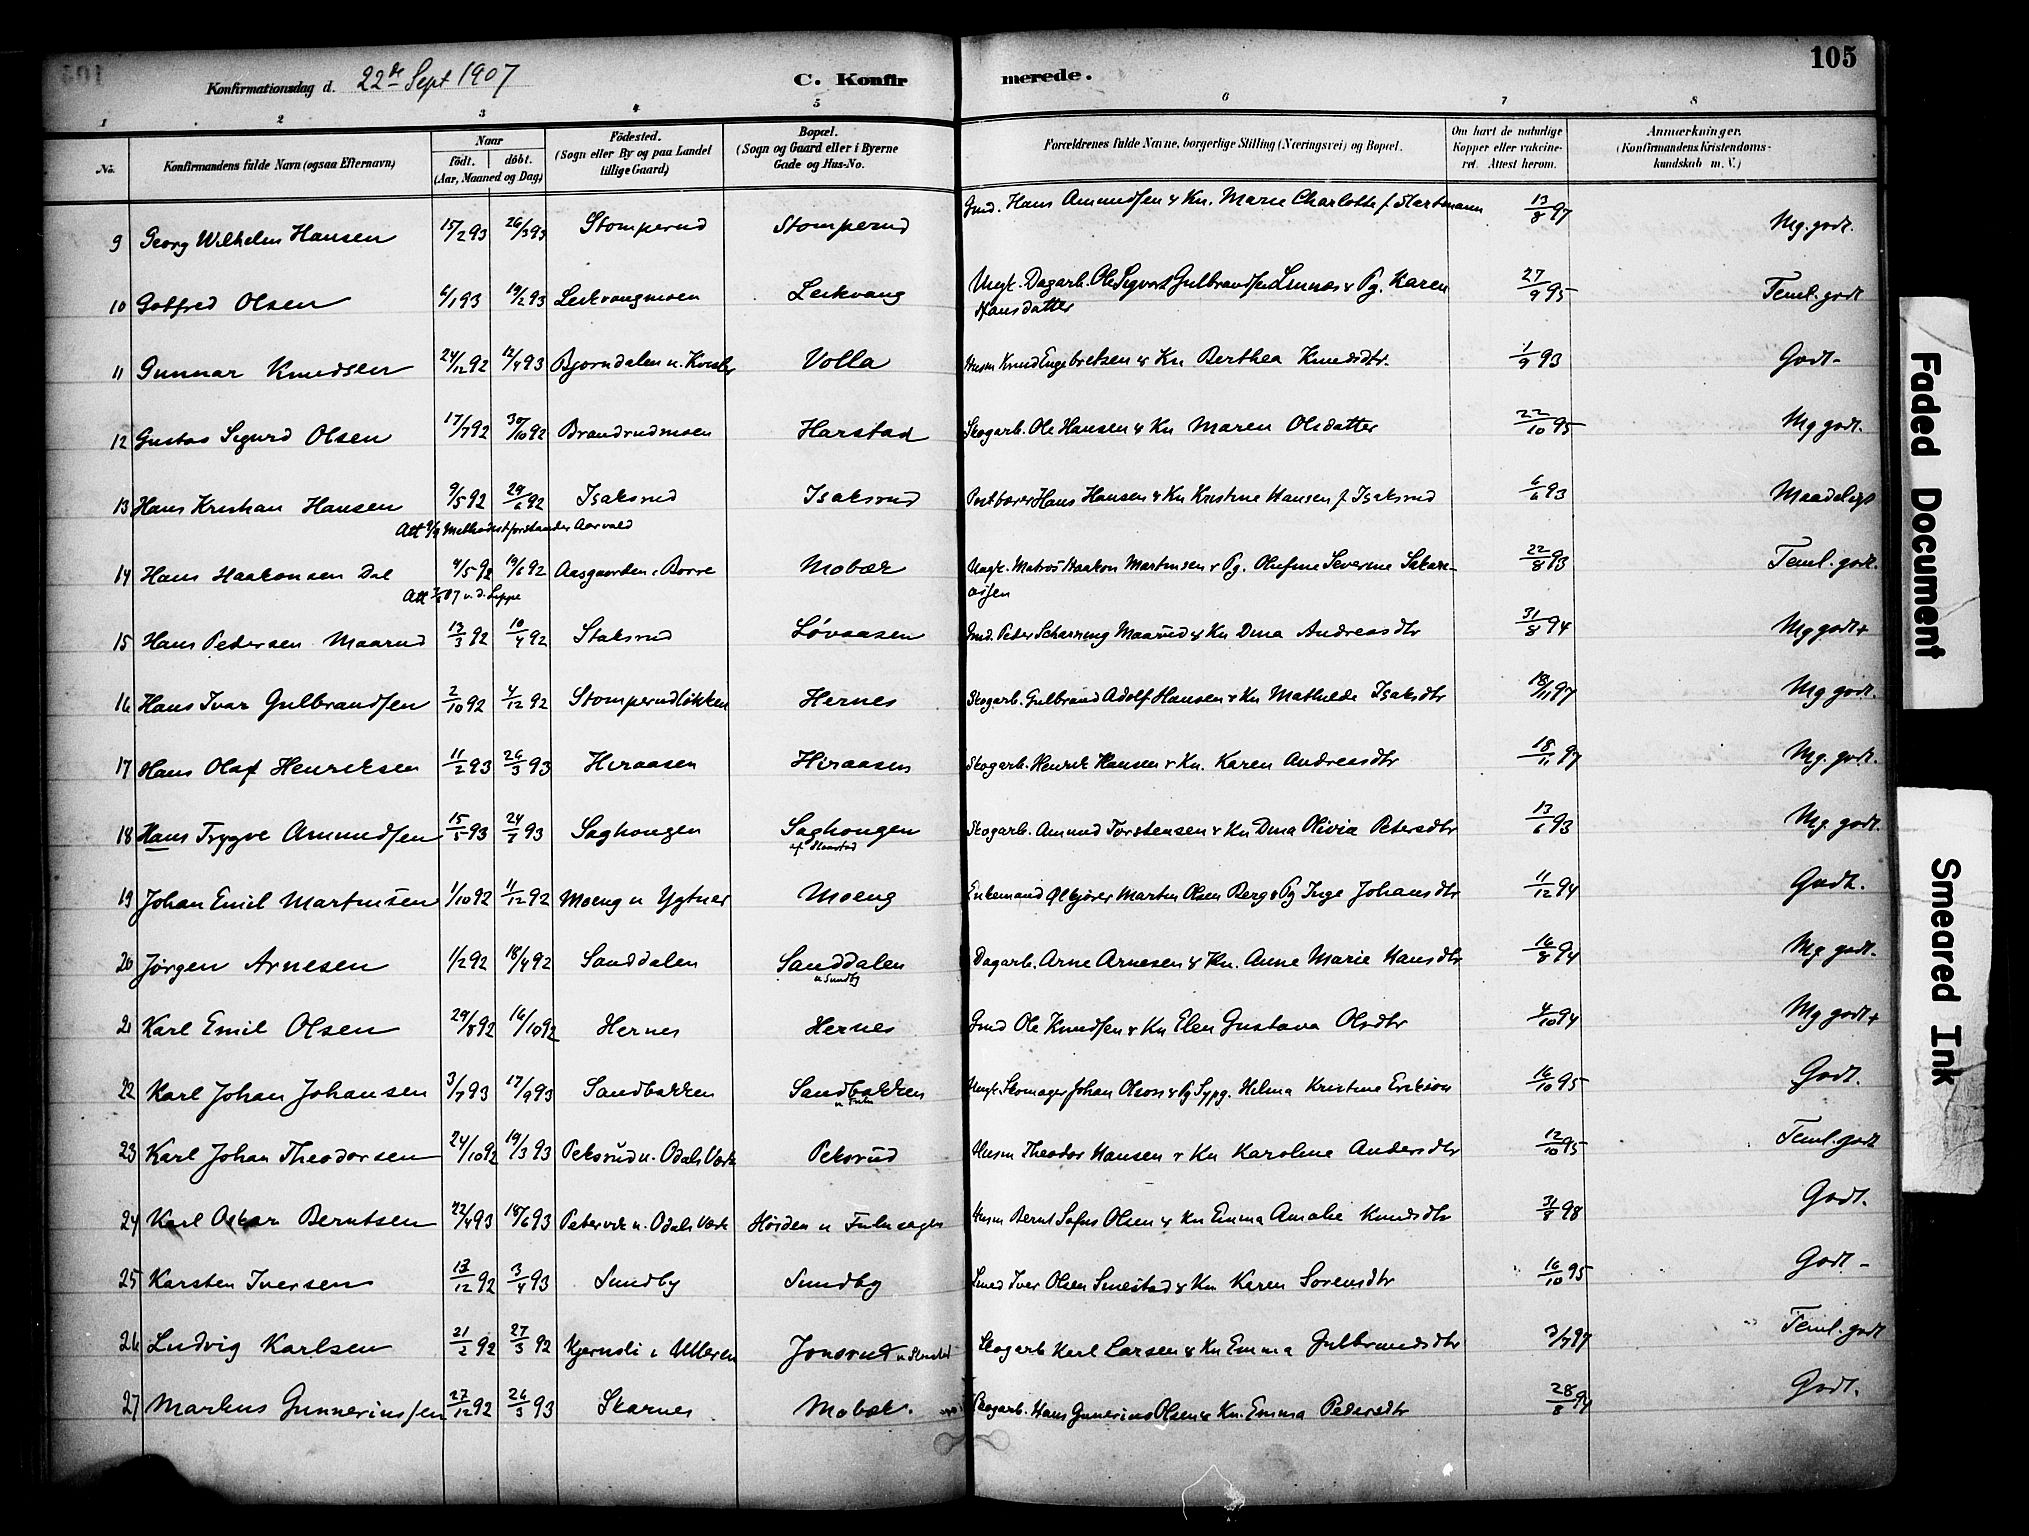 105
Konfirmationsdag d. 22de Sept 1907
C. Konfirmerede.
1 2 3 4 5 6 7 8
No.
Konfirmandens fulde Navn (ogsaa Efternavn)
Naar
födt. döbt.
(Aar, Maaned og Dag)
Födested.
(Sogn eller By og paa Landet
tillige Gaard)
Bopæl.
(Sogn og Gaard eller i Byerne
Gade og Hus-No.
Forældrenes fulde Navne, borgerlige Stilling (Næringsvei) og Bopæl.
Om havt de naturlige
Kopper eller vakcine-
ret. Attest herom.
Anmærkninger.
(Konfirmandens Kristendoms-
kundskab m. V.)
9 Georg Wilhelm Hansen 15/2 93 26/3 93 Stomperud Stomperud Gmd. Hans Amundsen & Kn. Marie Charlotte f. Hartmann 13/8 97 Mg. godt.
10 Gotfred Olsen 6/1 93 19/2 93 Leikvangmoen Leikvang Ungk. Dagarb. Ole Sigvart Gulbrandsen Linnæs & Pg. Karen
Hansdatter 27/9 95 Teml. godt
11 Gunnar Knudsen 24/12 92 12/4 93 Bjørndalen u. Volla Husm Knud Engebretsen & Kn Berthea Knudsdtr. 1/9 93 Godt-
12 Gustav Sigurd Olsen 17/7 92 30/10 92 Brandrudmoen Harstad Skogarb. Ole Hansen & Kn Maren Olsdatter 22/10 95 Mg godt.
13 Hans Kristian Hansen 9/5 92 29/6 92 Isaksrud Isaksrud Postbærer Hans Hansen & Kn Kristine Hansen f. Isaksrud 6/6 93 Maadeligt
Att 9/9 Methodistforstander Aarvold
14 Hans Haakonsen Dal 4/5 92 19/6 92 Aasgaarden i Borre Mobæk Ungk. Matros Haakon Martinsen & Pg. Olufine Severine Sakari-
assen 22/8 93 Teml. godt.
Att 07 v. d.
15 Hans Petersen Maarud 13/3 92 10/4 92 Staksrud Løvaasen Gmd. Peder Schanning Maarud & Kn Dina Andreasdtr 31/8 94 Mg godt+
16 Hans Ivar Gulbrandsen 2/10 92 4/12 92 Stomperudløkken Hernes Skogarb. Gulbrand Adolf Hansen & Kn Mathilde Isaksdtr 18/11 97 Mg godt.
17 Hans Olaf Henriksen 11/2 93 26/3 93 Hiraasen Hiraasen Skogarb. Henrik Hansen & Kn. Karen Andreasdtr 18/11 97 Mg. godt.
18 Hans Trygve Amundsen 15/5 93 24/7 93 Saghougen Saghougen Skogarb. Amund Torstensen & Kn Dina Olivia Petersdtr 13/6 93 Mg. godt.
af Harstad
19 Johan Emil Martinsen 1/10 92 11/12 92 Moeng u Ygtner Moeng Enkemand Ølkjører Martin Olsen Berg & Pg Inge Johansdtr 11/12 94 Godt.
20 Jörgen Arnesen 1/2 92 18/4 92 Sanddalen Sanddalen Dagarb. Arne Arnesen & Kn. Anne Marie Hansdtr 16/8 94 Mg. godt.
u Sundby
21 Karl Emil Olsen 29/8 92 16/10 92 Hernes Hernes Gmd Ole Knudsen & Kn Elen Gustava Olsdtr 4/10 94 Mg godt+
22 Karl Johan Johansen 3/7 93 17/9 93 Sandbakken Sandbakken Ungk. Skomager Johan Olsson & Pg Sypg. Hilma Kristine Erikson 16/10 95 Godt.
u Fulu
23 Karl Johan Theodorsen 24/10 92 19/3 93 Peksrud u. Odals Værk Peksrud Husm Theodor Hansen & Kn Karoline Andersdtr 12/10 95 Teml. godt
24 Karl Oskar Berntsen 22/4 93 18/6 93 Petersvik u. Odals Værk Höiden u Fulusagen Husm Bernt Sofus Olsen & Kn Emma Amalie Knudsdtr 31/8 98 Godt.
25 Karsten Iversen 13/12 92 3/4 93 Sundby Sundby Smed Iver Olsen Smestad & Kn Karen Sorensdtr 16/10 95 Godt-
26 Ludvig Karlsen 21/2 92 27/3 92 Kjernsli i Ulleren Jonsrud u Harstad Skogarb Karl Larsen & Kn Emma Gulbrandsdtr 3/7 97 Teml. godt
27 Markus Gunneriussen 27/12 92 26/3 93 Skarnes Mobæk. Skogarb. Hans Gunerius Olsen & Kn. Emma Pedersdtr 28/8 94 Godt.
Faded Document
Smeared Ink